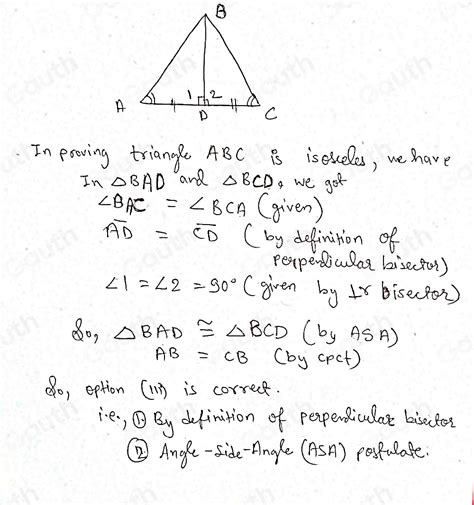 B
1 2
A D C
In proving triangle ABC is isosceles, we have
In △BAD and △BCD, we got
∠BAC = ∠BCA (given)
AD = CD (by definition of
perpendicular bisector)
∠1 = ∠2 = 90° (given by ⊥r bisector)
So, △BAD ≅ △BCD (by ASA)
AB = CB (by cpct)
So, option (iii) is correct.
i.e., ① By definition of perpendicular bisector
② Angle-Side-Angle (ASA) postulate.